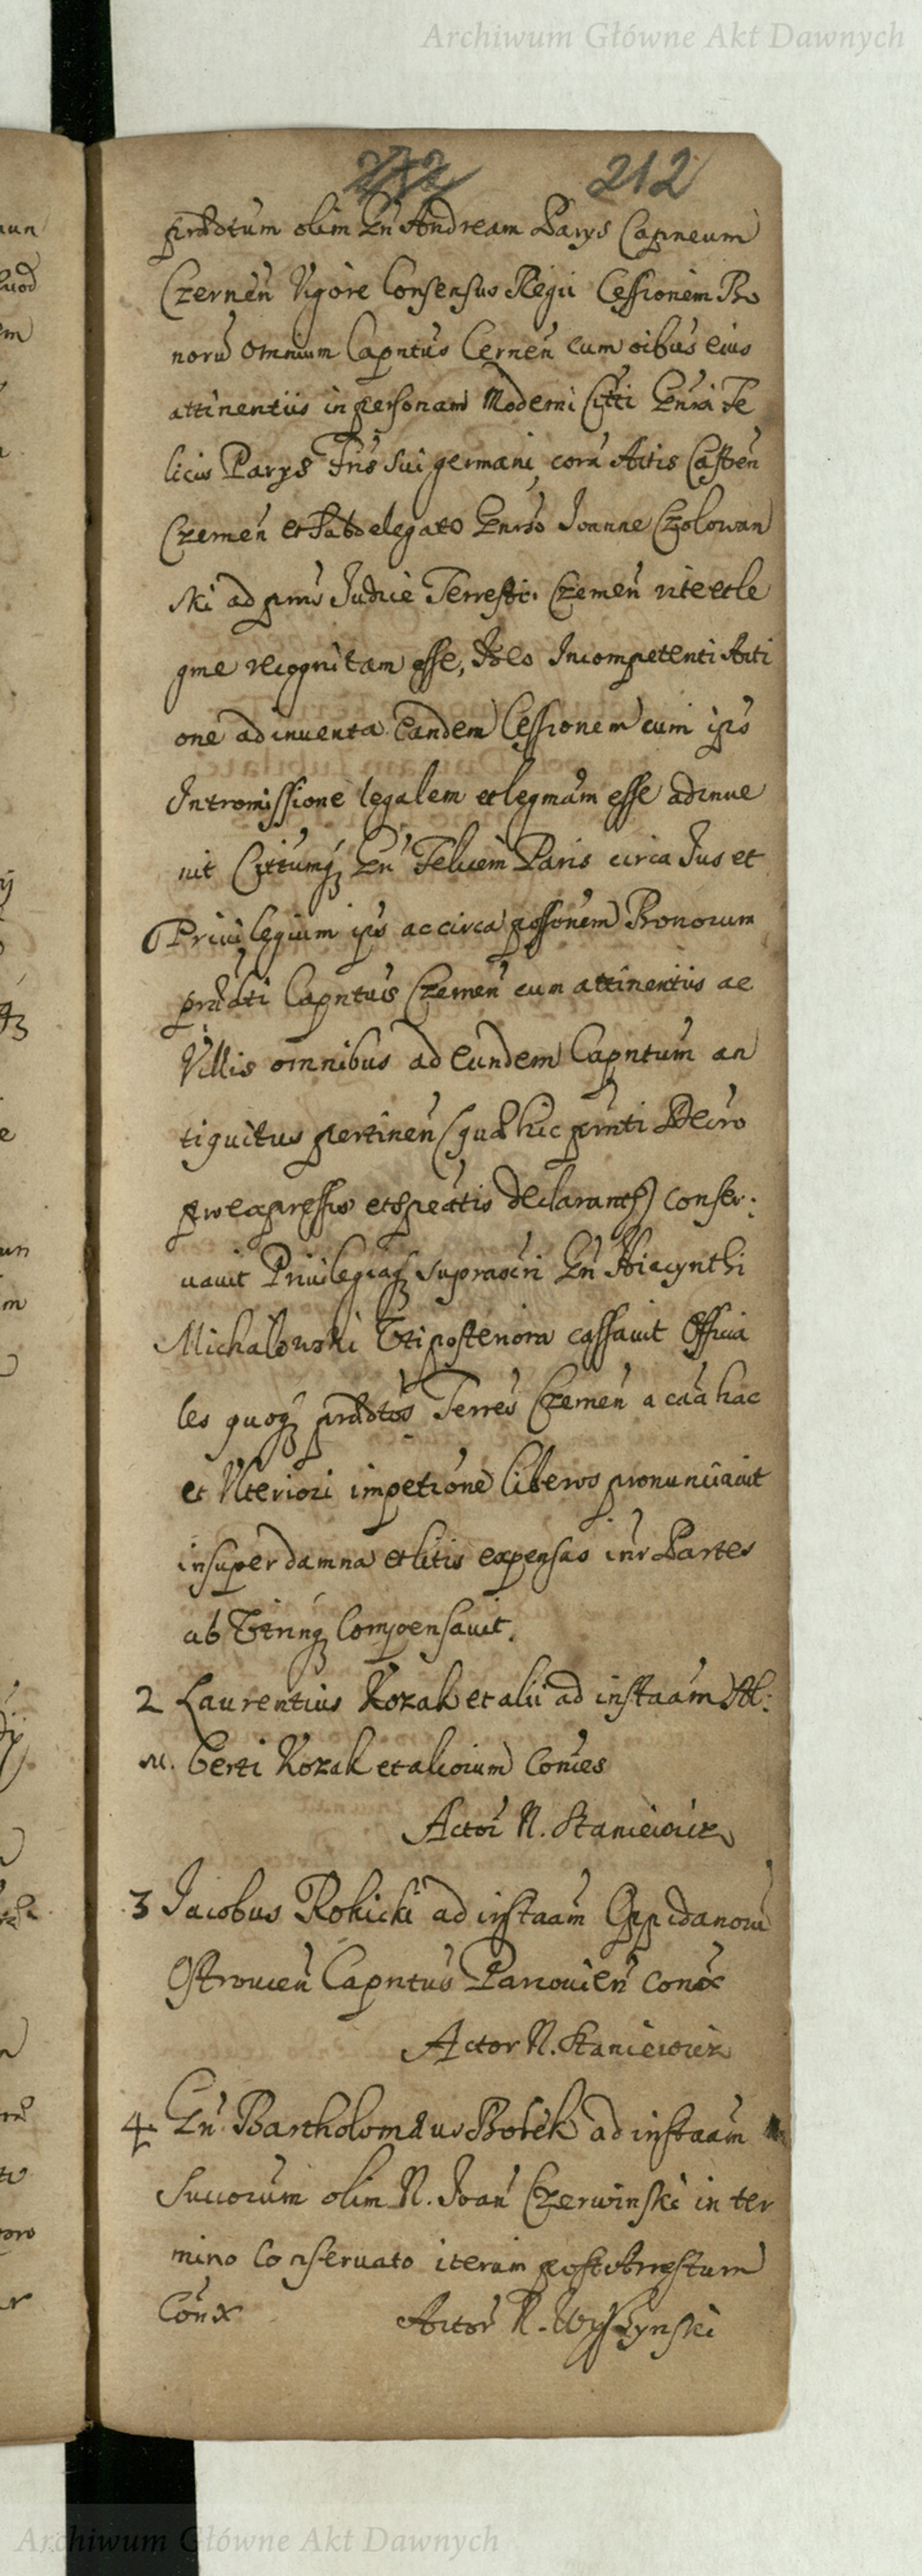 Archiwum Główne Akt Dawnych
212
prædctum olim Gn Andream Parys Capneum
Czernen Vigore Consensus Regii Cessionem Bo
noru omnium Capntus Cernen cum oibus eius
attinentiis in personam Moderni Citti Gnri Fe
licis Parys Fris sui germani, corā Actis Casten
Czernen et Subdelegato Gnrso Joanne Czolowan
ski ad prns Judice Terrestr. Czernen rite et le
gme recognitam esse, Ideo Incompetenti Acti
one adinventa Eandem Cessionem cum ips
Intromissione legalem et legmam esse adinve
nit Cittumq Gn Felicem Paris circa Jus et
Privilegium ips ac circa possonem Bonorum
prædti Capntus Czernen cum attinentiis ac
Villis omnibus ad Eundem Capntum an
tiquitus pertinen (quæ hic prnti Decro
pro expressis et specatis declarantr) conser:
vavit Privilegiaq suprascri Gn Hiacynthi
Michalowski Uti posteriora cassavit Officia
les quoq prædctos Terres Czernen a caa hac
et Ulteriori impetione liberos pronunciavit
insuper damna et litis expensas inr Partes
ab Utrinq Compensavit.
2 Laurentius Kozak et alii ad instaam Al:
M. berti Kozak et aliorum Conies
Actor N. Staniewicz
3 Jacobus Rokicki ad instaam Oppidanoru
Ostrovien Capntus Parcovien Conx
Actor N. Staniewicz
4 Gn Bartholomæus Bobek ad instaam
Succorum olim N. Joan Czerwinski in ter
mino Conservato iterum post Arrestum
Conx Actor N. Wyszynski
Archiwum Główne Akt Dawnych